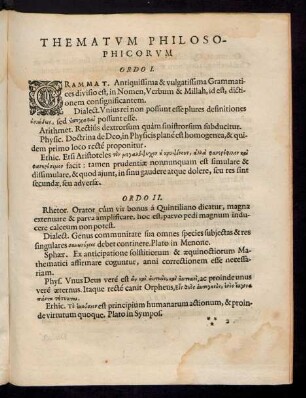 THEMATVM PHILOSO-
PHICORVM
ORDO I.
GRAMMAT. Antiquissima & vulgatissima Grammati
ces divisio est, in Nomen, Verbum & Millah, id est, dicti-
onem consignificantem.
Dialect. Vnius rei non possunt esse plures definitiones
sed ὑπογραφαὶ possunt esse.
Arithmet. Rectius dextrorsum quàm sinistrorsum subducitur.
Physic. Doctrina de Deo, in Physicis planè est homogenea, & qui-
dem primo loco rectè proponitur.
Ethic. Etsi Aristoteles
facit: tamen prudentiæ nonnunquam est simulare &
dissimulare, & quod ajunt, in sinu gaudere atque dolere, seu res sint
secundæ, seu adversæ.
ORDO II.
Rhetor. Orator cùm vir bonus à Quintiliano dicatur, magna
extenuare & parva amplificare, hoc est, parvo pedi magnum indu-
cere calceum non potest.
Dialect. Genus communitate sua omnes species subjectas & res
singulares debet continere. Plato in Menone.
Sphær. Ex anticipatione solstitiorum & æquinoctiorum Ma-
thematici affirmare coguntur, anni correctionem esse necessa-
riam.
Phys. Vnus Deus verè est ac proinde unus
verè æternus. Itaque rectè canit Orpheus,
Ethic. est principium humanarum actionum, & proin-
de virtutum quoque. Plato in Sympos.
2